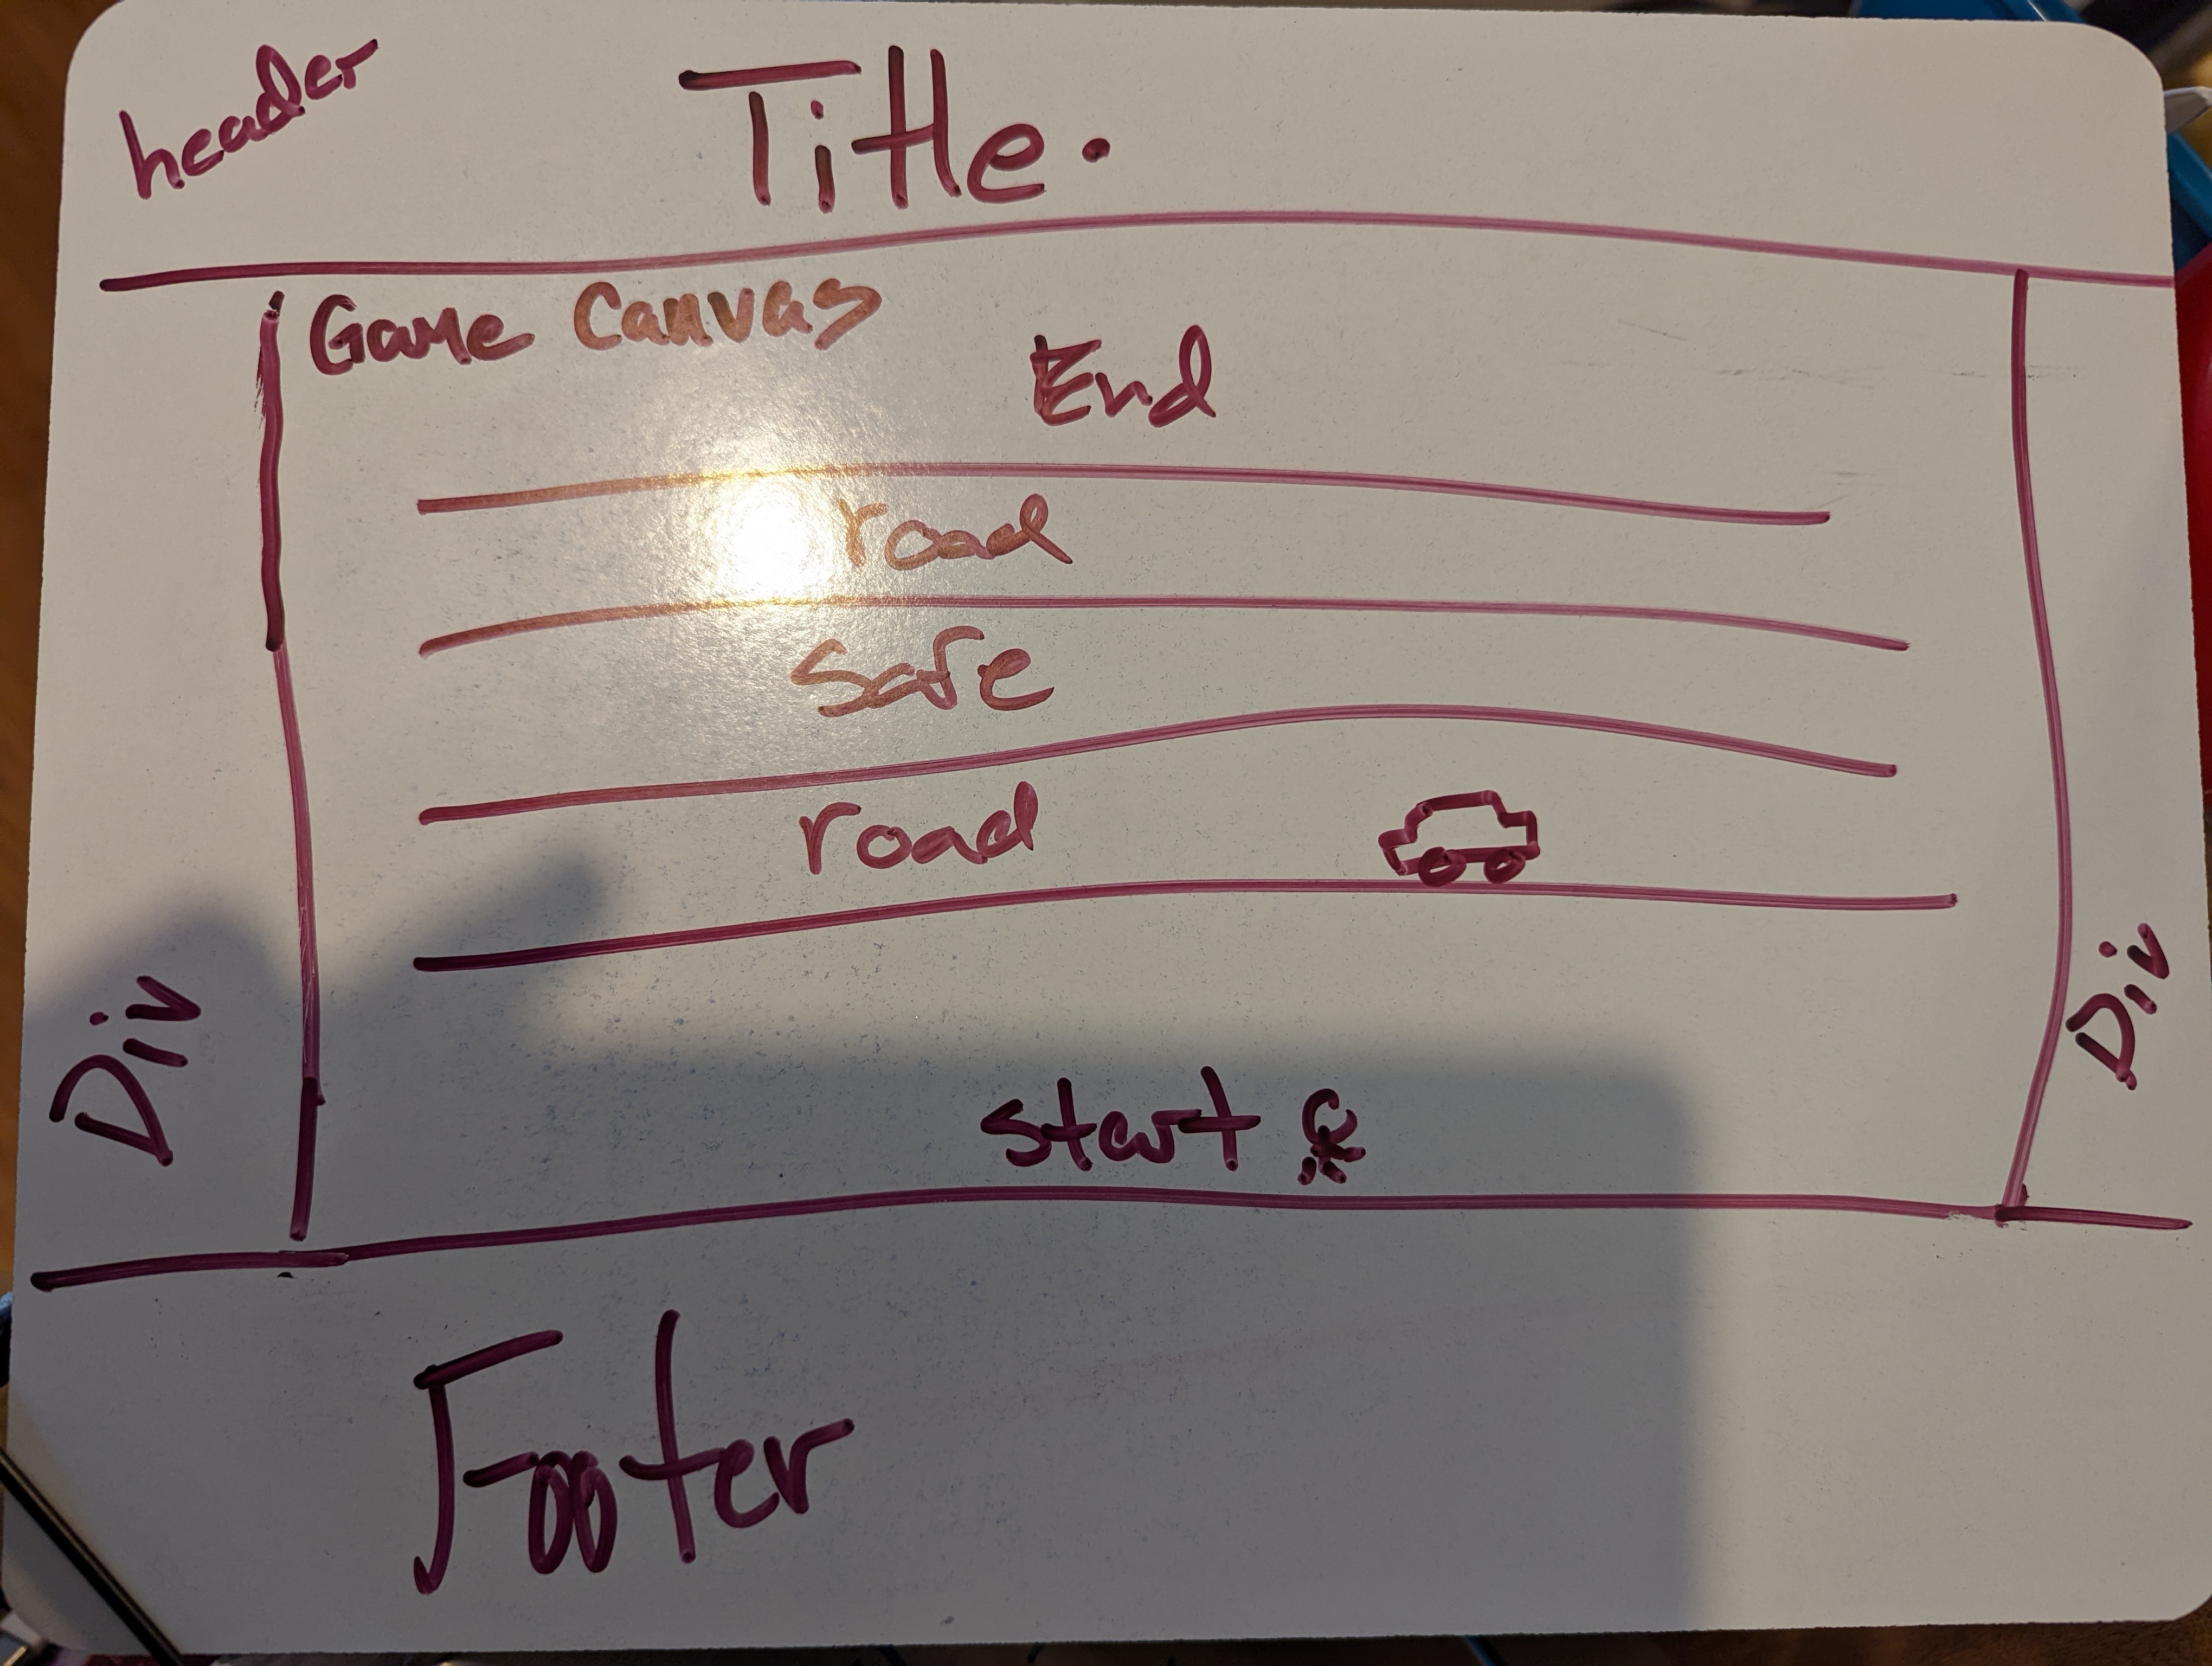 header
Title.
Game Canvas
End
road
safe
road
Div
Div
start
Footer